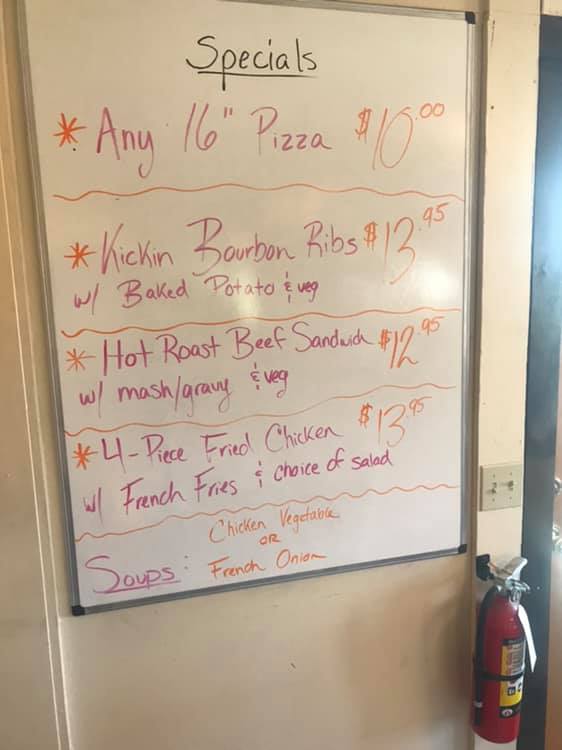 Specials
* Any 16" Pizza $10.00
* Kickin Bourbon Ribs $13.95
w/ Baked Potato & veg
* Hot Roast Beef Sandwich $12.95
w/ mash/gravy & veg
* 4-Piece Fried Chicken $13.95
w/ French Fries & choice of salad
Chicken Vegetable
OR
Soups: French Onion